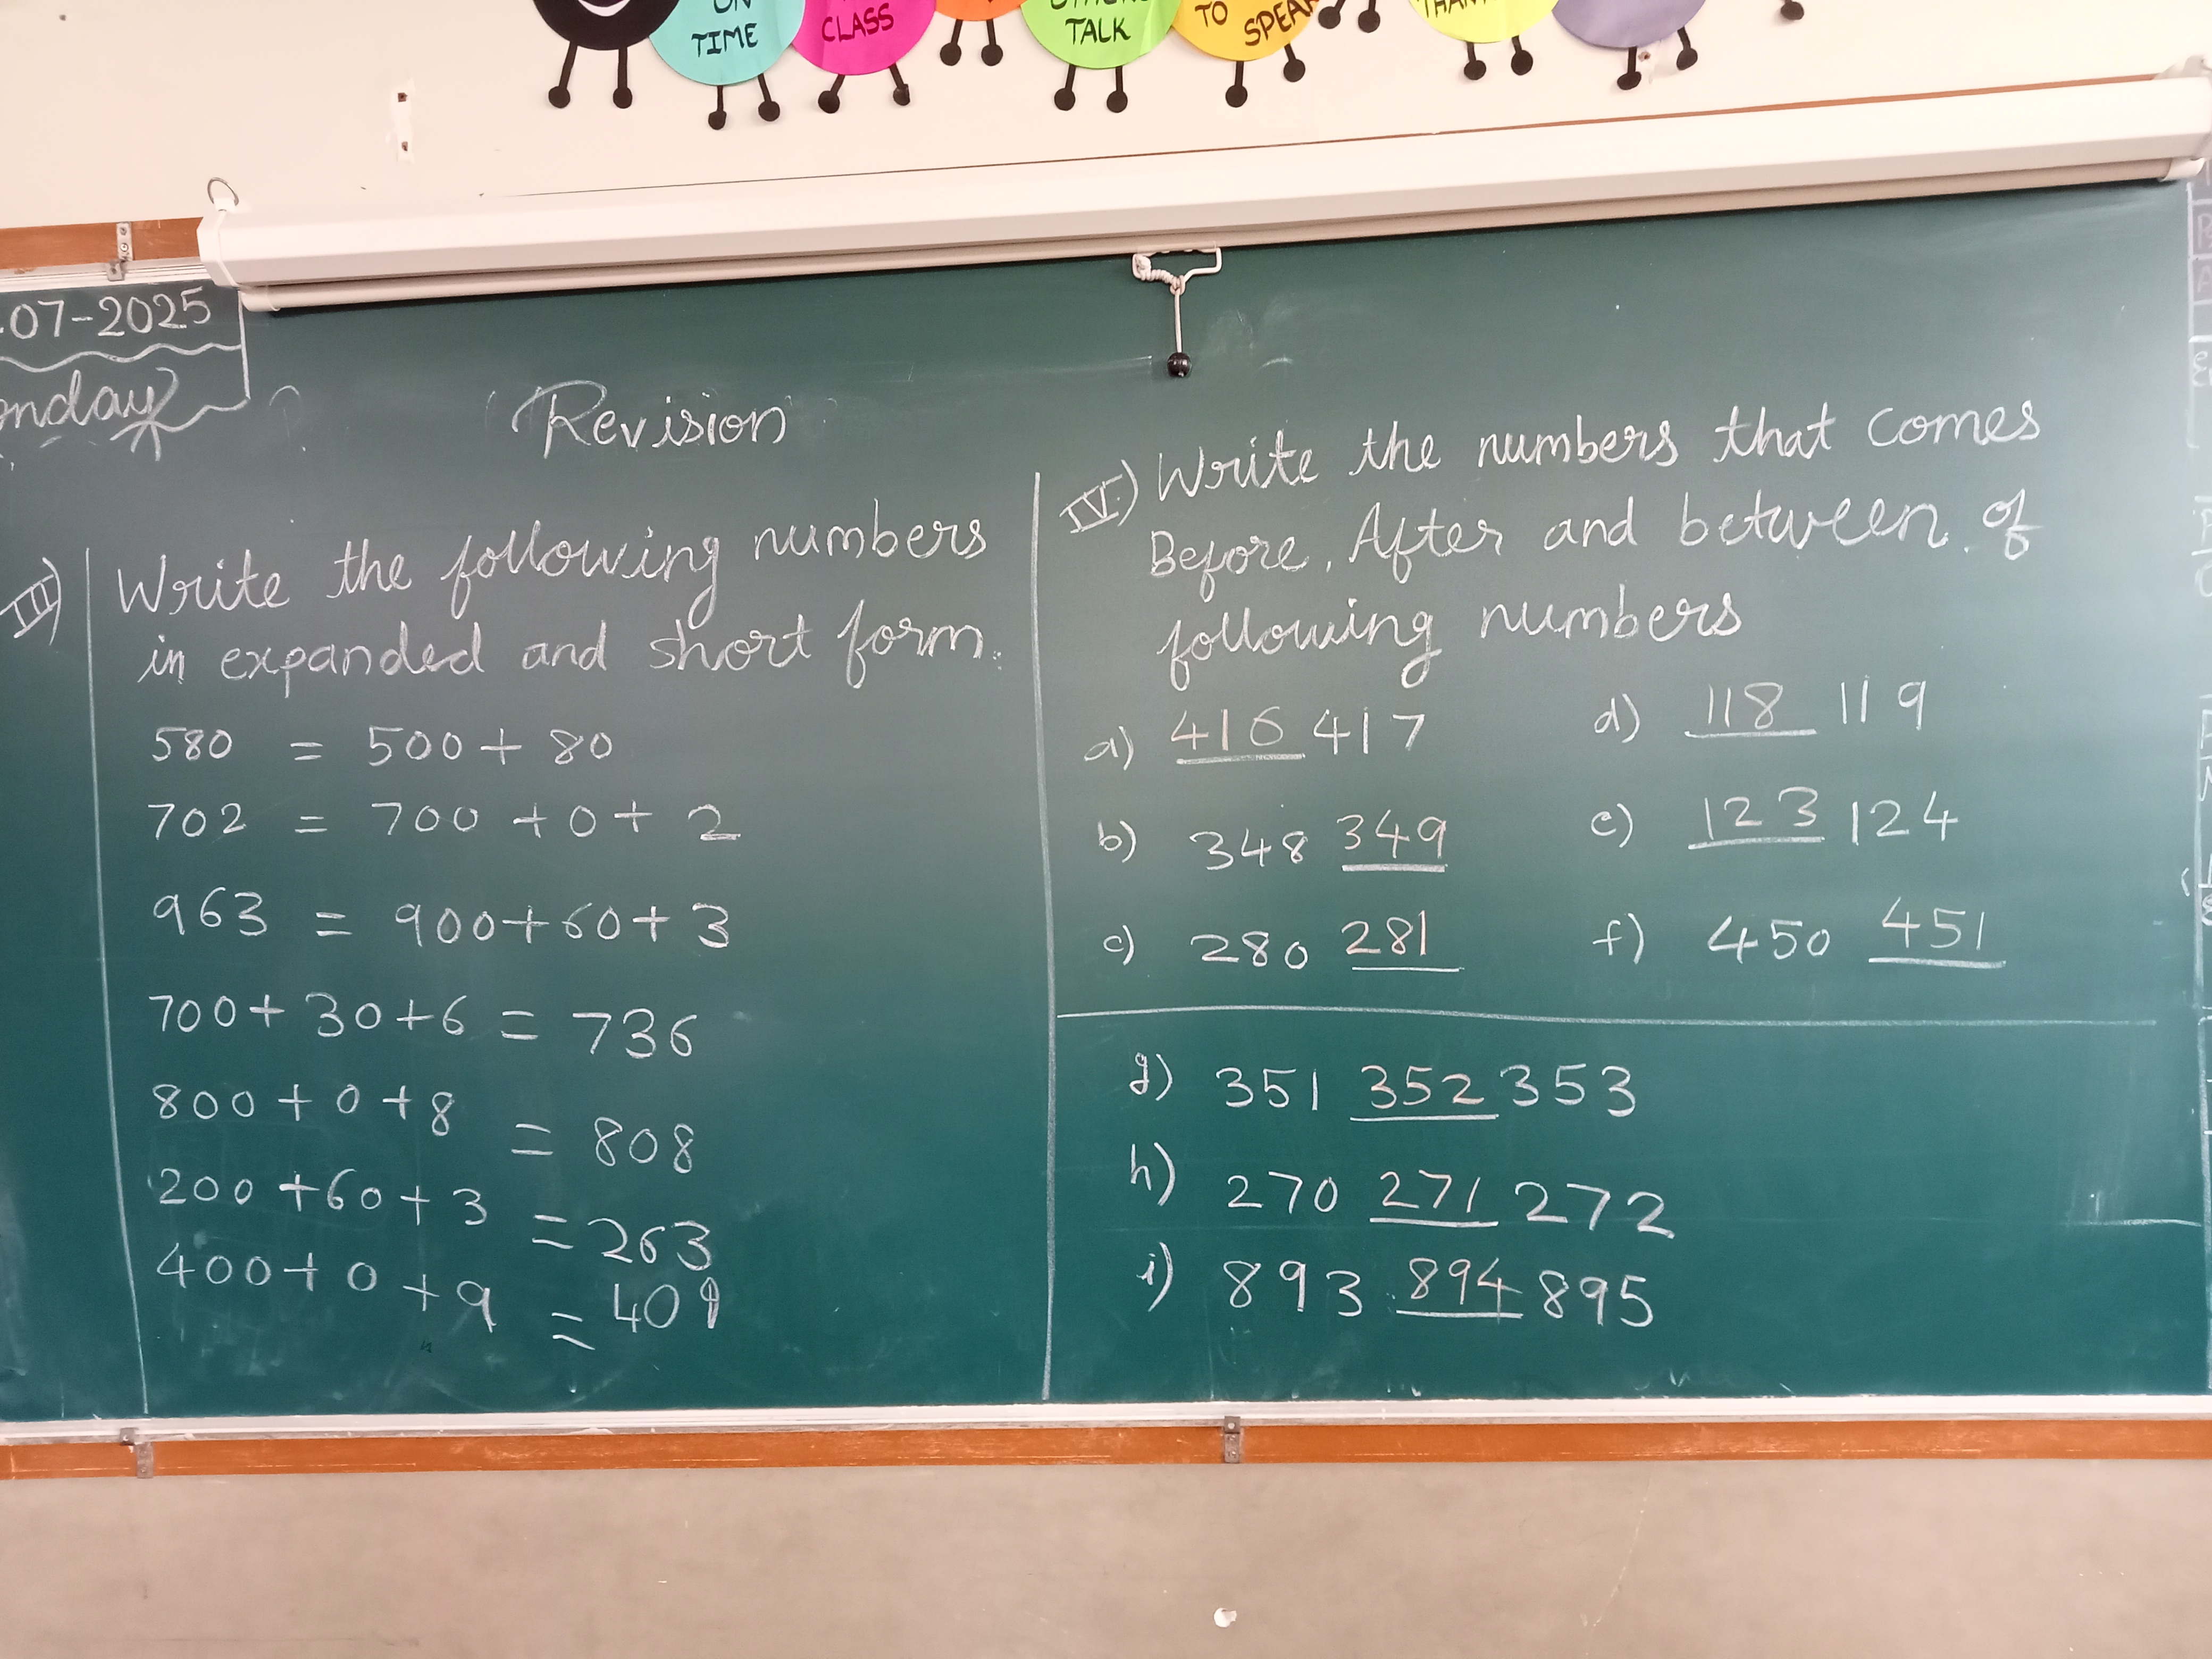 TIME
CLASS
TALK
TO SPEAK
07-2025
Revision
III) Write the following numbers
in expanded and short form.
580 = 500 + 80
702 = 700 + 0 + 2
963 = 900 + 60 + 3
700 + 30 + 6 = 736
800 + 0 + 8 = 808
200 + 60 + 3 = 263
400 + 0 + 9 = 409
IV) Write the numbers that comes
Before, After and between of
following numbers
a) 416 417
b) 348 349
c) 280 281
d) 118 119
e) 123 124
f) 450 451
g) 351 352 353
h) 270 271 272
i) 893 894 895